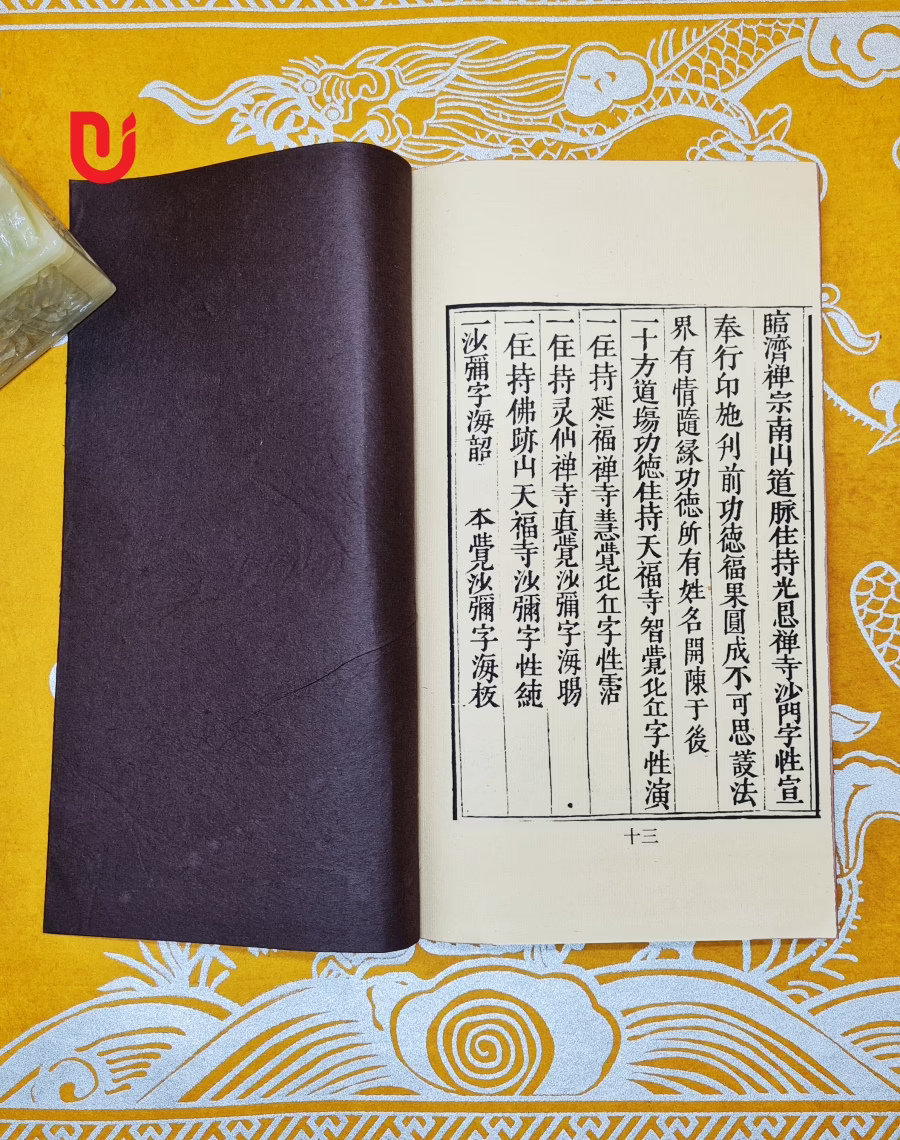 臨濟禅宗南山道脈住持光恩禅寺沙門字性宣
奉行印施刋前功德福果圓成不可思議法
界有情隨緣功德所有姓名開陳于後
一十方道塲功德住持天福寺智覺比丘字性演
一住持延福禅寺慧覺比丘字性霑
一住持灵仙禅寺真覺沙彌字海賜
一住持佛跡山天福寺沙彌字性純
一沙彌字海韶 本覺沙彌字海板
十三